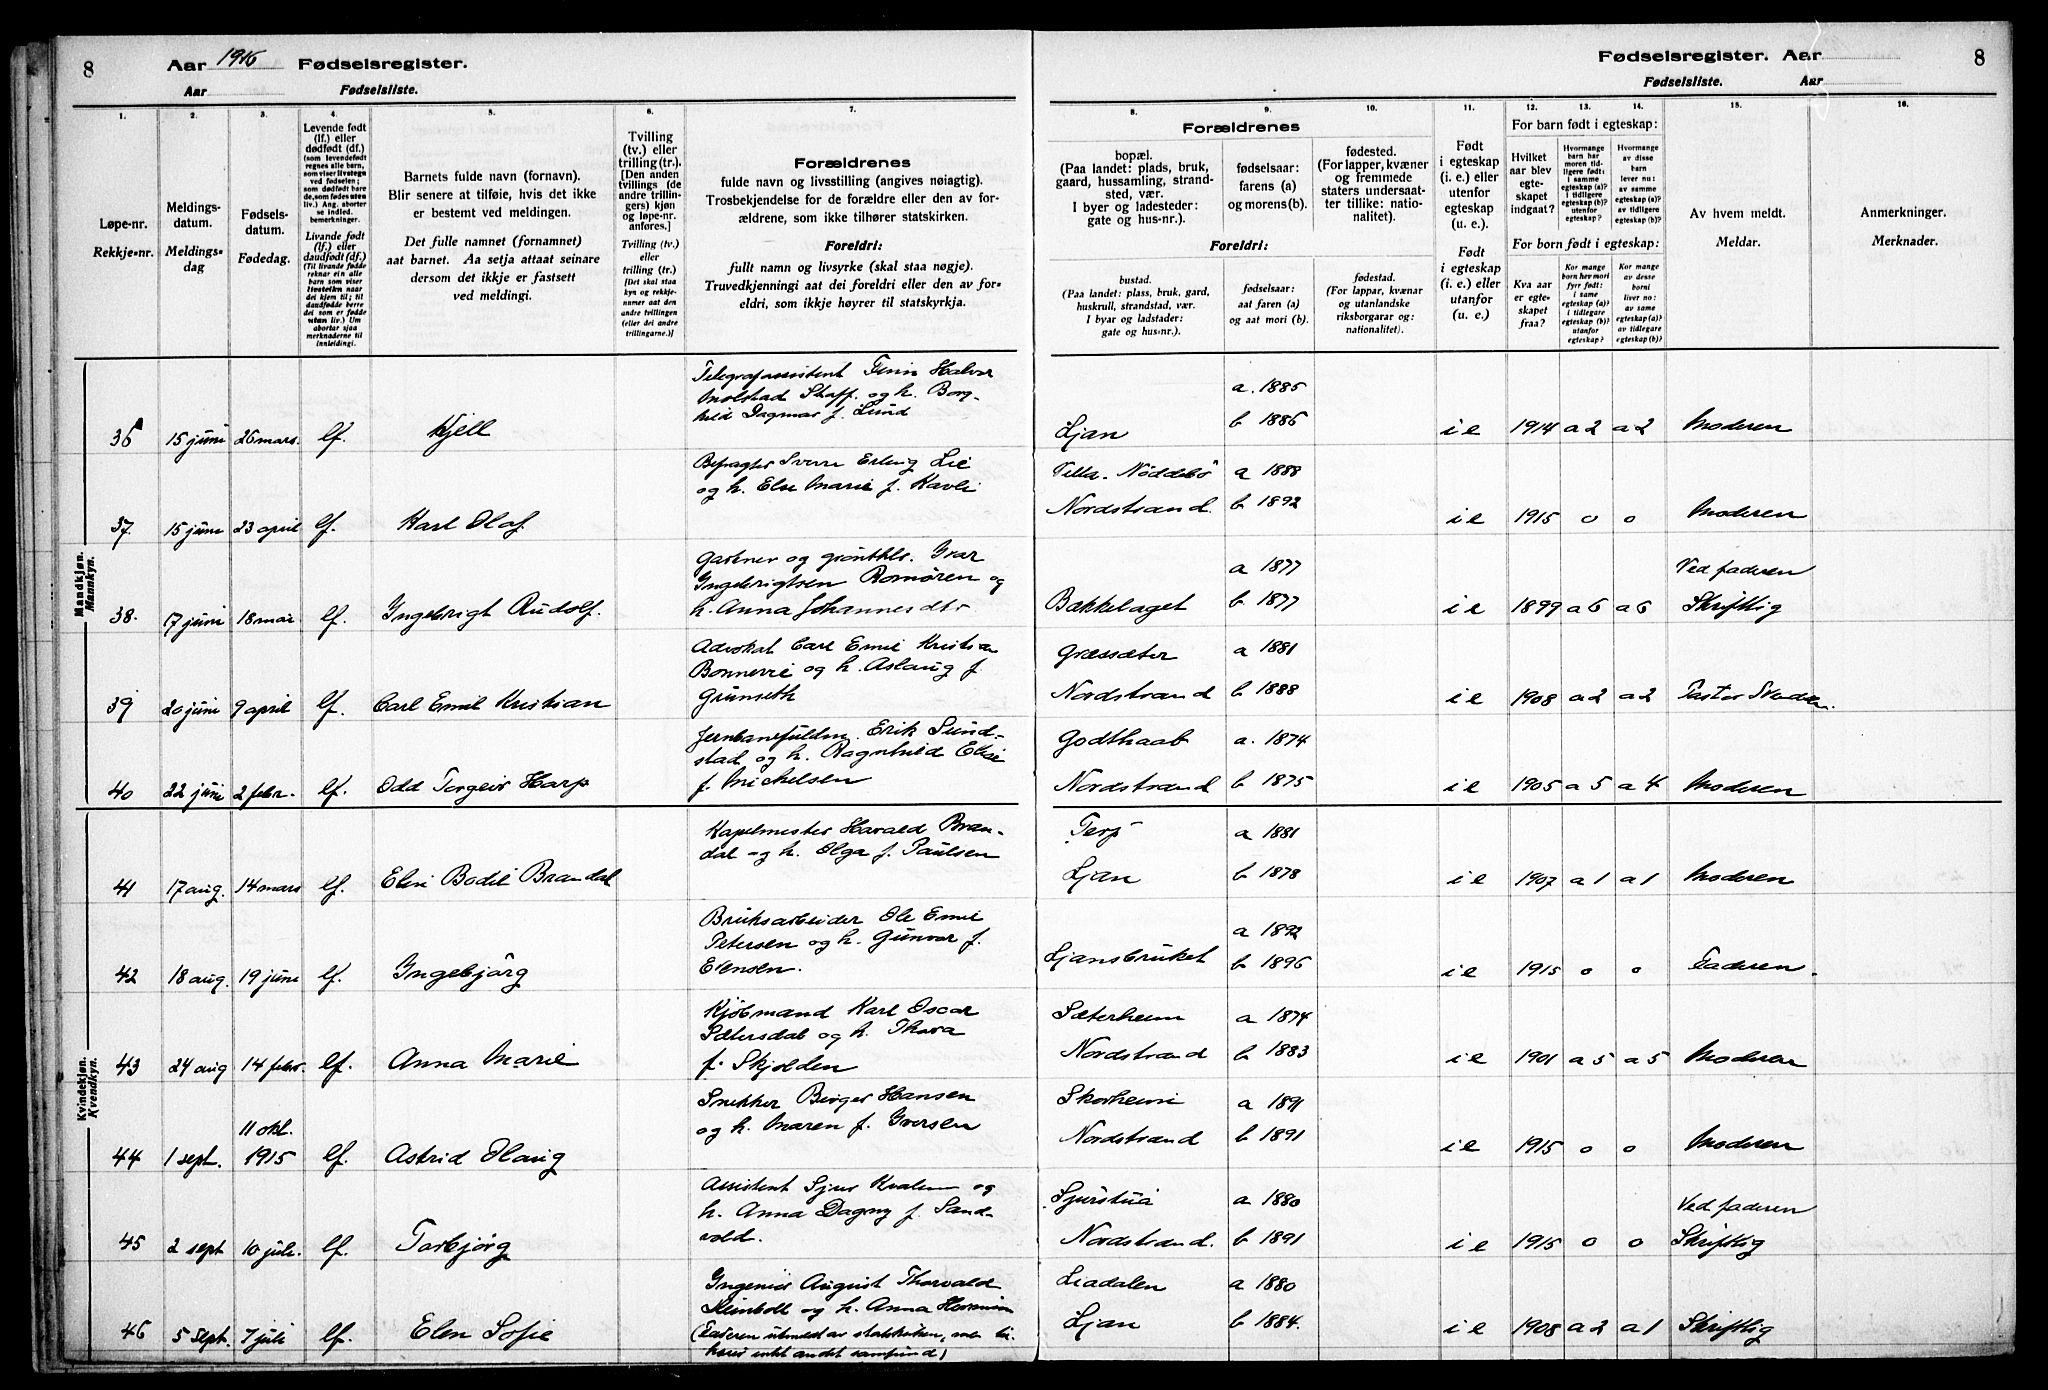 8 Aar 1916 Fødselsregister.
Aar Fødselsliste.
Fødselsregister. Aar 8
Fødselsliste. Aar
1. 2. 3. 4. 5. 6. 7. 8. 9. 10. 11. 12. 13. 14. 15. 16.
Løpe-nr.
Rekkje-nr.
Meldings-
datum.
Meldings-
dag
Fødsels-
datum.
Fødedag.
Levende født
(lf.) eller
dødfødt (df.)
(som levendefødt
regnes alle barn,
som viser livstegn
ved fødselen;
som dødfødt bare
de, som fødes uten
liv.) Ang. aborter
se indled.
bemerkninger.
Livande født
(lf.) eller
daudfødt (df.)
(Til livande fødde
reknar ein alle
barn som viser
livsteikn naar
dei kjem til; til
daudfødde berre
dei som er fødde
utan liv.) Um
abortar sjaa
merknaderne til
innleidingi.
Barnets fulde navn (fornavn).
Blir senere at tilføie, hvis det ikke
er bestemt ved meldingen.
Det fulle namnet (fornamnet)
aat barnet. Aa setja attaat seinare
dersom det ikkje er fastsett
ved meldingi.
Tvilling
(tv.) eller
trilling (tr.).
[Den anden
tvillings (de
andre trillin-
gers) kjøn
og løpe-nr.
anføres.]
Tvilling (tv.)
eller
trilling (tr.)
[Det skal staa
kyn og rekkje-
nummer aat den
andre tvillingen
(eller dei andre
trillingarne.)]
Forældrenes
fulde navn og livsstilling (angives nøiagtig).
Trosbekjendelse for de forældre eller den av for-
ældrene, som ikke tilhører statskirken.
Foreldri:
fullt namn og livsyrke (skal staa nøgje).
Truvedkjenningi aat dei foreldri eller den av for-
eldri, som ikkje høyrer til statskyrkja.
Forældrenes
bopæl.
(Paa landet: plads, bruk,
gaard, hussamling, strand-
sted, vær.
I byer og ladesteder:
gate og hus-nr.).
Foreldri:
bustad.
(Paa landet: plass, bruk, gard,
huskrull, strandstad, vær.
I byar og ladstader:
gate og hus-nr.).
fødselsaar:
farens (a)
og morens (b).
fødselsaar:
aat faren (a)
og aat mori (b).
fødested.
(For lapper, kvæner
og fremmede
staters undersaat-
ter tillike: natio-
nalitet).
fødestad.
(For lappar, kvænar
og utanlandske
riksborgarar og:
nationalitet).
Født
i egteskap
(i. e.) eller
utenfor
egteskap
(u. e.).
Født
i egteskap
(i. e.) eller
utanfor
egteskap
(u. e.).
For barn født i egteskap:
Hvilket
aar blev
egte-
skapet
indgaat?
Hvormange
barn har
moren tid-
ligere født:
i samme
egteskap (a)?
i tidligere
egteskap (b)?
utenfor
egteskap?
Hvormange
av disse
barn
lever nu:
av samme
egteskap (a)?
av tidligere
egteskap (b)?
For born født i egteskap:
Kva aar
er egte-
skapet
fraa?
Kor mange
born hev mori
fyrr født:
i same
egteskap (a)?
i tidlegare
egteskap (b)?
utanfor
egteskap?
Kor mange
av desse
borni
liver no:
av same
egteskap (a)?
av tidlegare
egteskap (b)?
Av hvem meldt.
Meldar.
Anmerkninger.
Merknader.
Mandkjøn.
Mannkyn.
Telegrafassistent Finn Halvor
Molstad Staff. og h. Borg-
hild Dagmar f. Lund
a. 1885
36 15 juni 26 mars. lf. Kjell Ljan b 1886 i e 1914 a 2 a 2 Moderen
Befragter Sverre Erling Lie Villa. Nøddebo a 1888
og h. Else Marie f. Kavli Nordstrand. b. 1892
37. 15 juni 23 april lf. Karl Olaf. i e 1915 0 0 Moderen
Gartner og grønthlr. Ivar a 1877 Ved faderen
Ingebrigtsen Romøren og
38. 17 juni 18 mai lf. Ingebrigt Rudolf. h. Anna Johannesdtr Bækkelaget b. 1877 i e 1899 a 6 a 6 Skriftlig
Advokat Carl Emil Kristian Græssæter a 1881
Bonnevie og h. Aslaug f.
Grünseth
39 20 juni 9 april lf. Carl Emil Kristian Nordstrand b 1888 i e 1908 a 2 a 2 Pastor
Jernbanefuldm. Erik Sund- Godthaab a. 1874
stad og h. Ragnhild Elise
f. Michelsen
40 22 juni 2 febr. lf. Odd Torgeir Harp Nordstrand b 1875 i e 1905 a 5 a 4 Moderen
Kvindekjøn.
Kvendkyn.
Kapelmester Harald Bran- Terp a 1881
dal og h. Olga f. Paulsen
41 17 aug. 14 mars lf. Elsi Bodil Brandal Ljan b 1878 i e 1907 a 1 a 1 Moderen
Bruksarbeider Ole Emil a 1892
Petersen og h. Gunvor f.
Evensen.
42 18 aug. 19 juni lf. Ingebjørg Ljansbruket b 1896 i e 1915 0 0 Faderen.
Kjøbmand Karl Oscar Sæterheim a 1874
Sætersdal og h. Thora
43 24 aug 14 febr. lf. Anna Marie f. Skjolden Nordstrand b 1883 i e 1901 a 5 a 5 Moderen
Snekker Birger Hansen Skovheim a 1891
og h. Maren f. Iversen Nordstrand b 1891
11 okt.
44 1 sept. 1915 lf. Astrid Olaug i e 1915 0 0 Moderen
Assistent Sjur Kvalem og Sjurstua a 1880 Ved faderen
h. Anna Dagny f. Sand-
vold.
45 2 sept 10 juli. lf. Torbjørg Nordstrand. b 1891 i e 1915 0 0 Skriftlig
Ingeniør August Thorvald Liadalen a 1880
og h. Anna
46 5 sept. 7 juli lf. Elen Sofie (Faderen utmeldt av statskirken, men til- Ljan b 1884. i e 1908 a 2 a 1 Skriftlig
hører intet andet samfund)